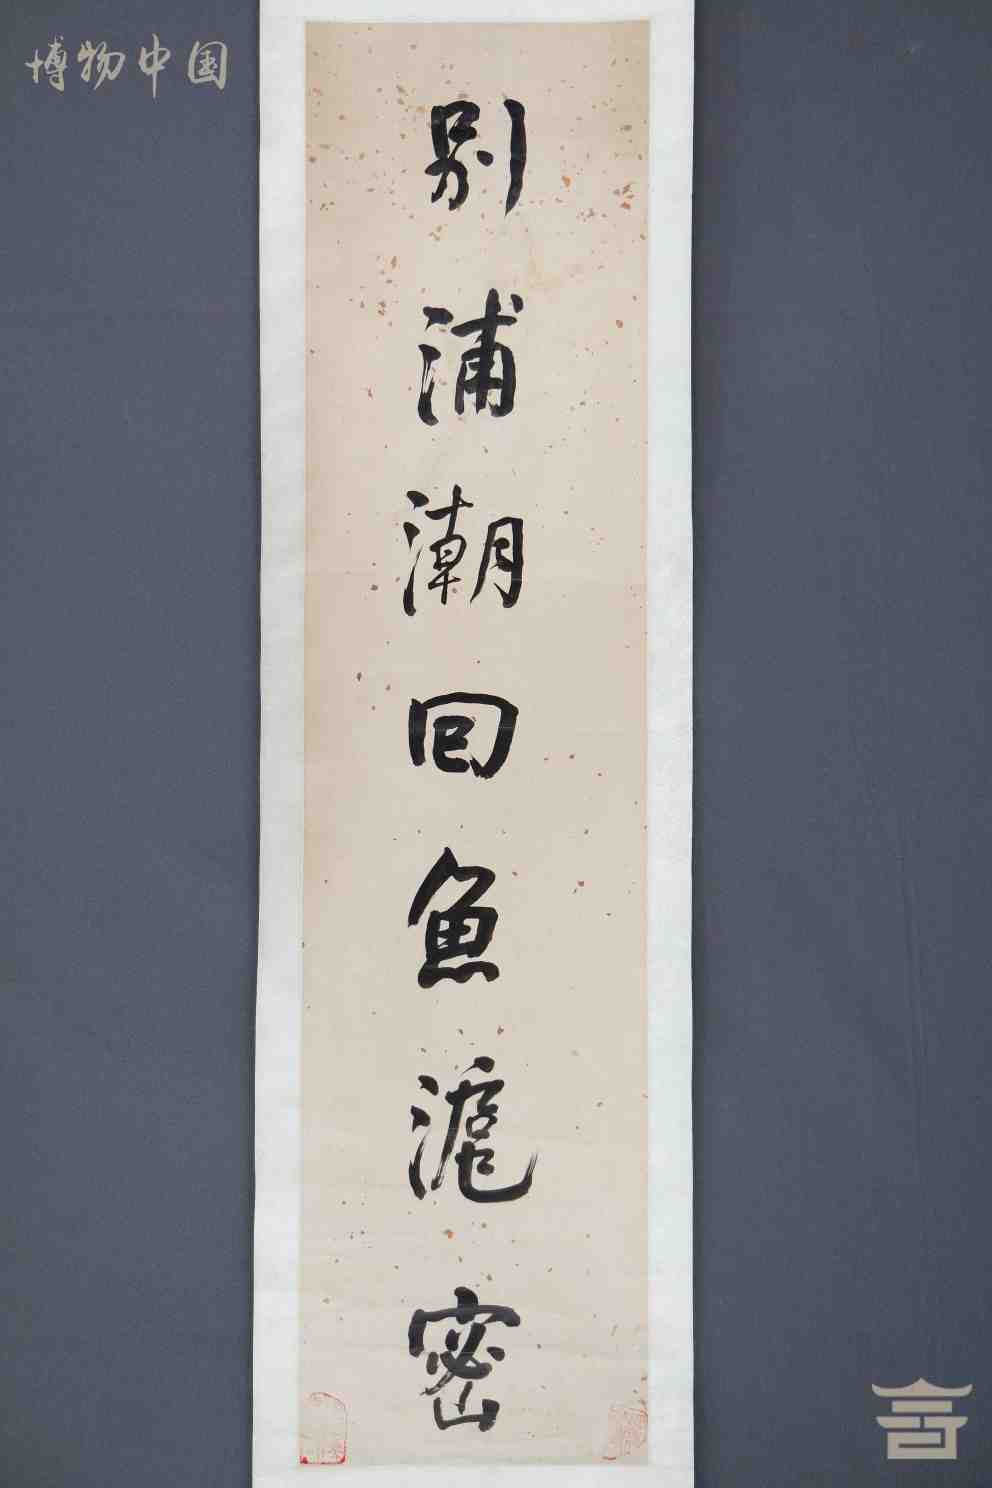 博物中国
别浦潮回魚滬密